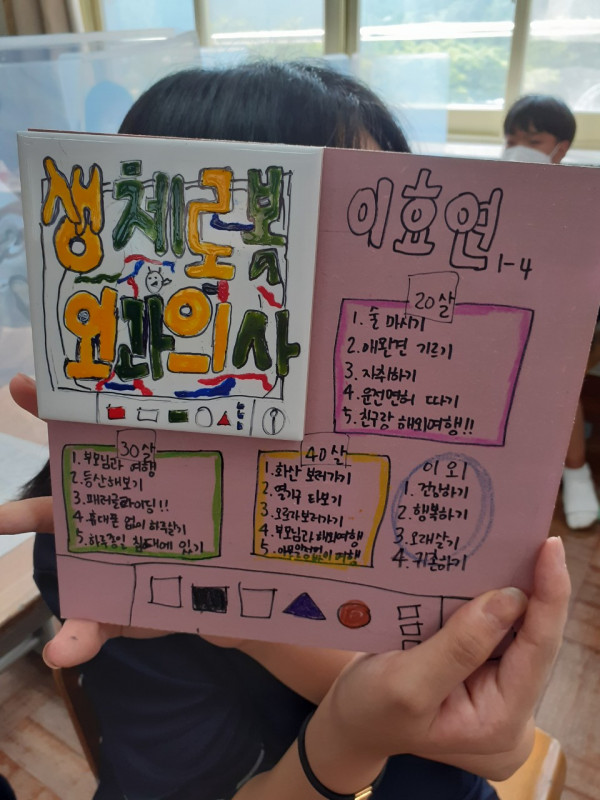 생체로봇
외과의사
이효연
1-4
20살
1. 술 마시기
2. 애완견 기르기
3. 자취하기
4. 운전면허 따기
5. 친구랑 해외여행!!
30살
1. 부모님과 여행
2. 등산해보기
3. 패러글라이딩!!
4. 휴대폰 없이 하루살기
5. 하루종일 침대에 있기
40살
1. 화산 보러가기
2. 열기구 타보기
3. 오로라보러가기
4. 부모님과 해외여행
5. 아무일정없이 여행
이 외
1. 건강하기
2. 행복하기
3. 오래살기
4. 귀촌하기